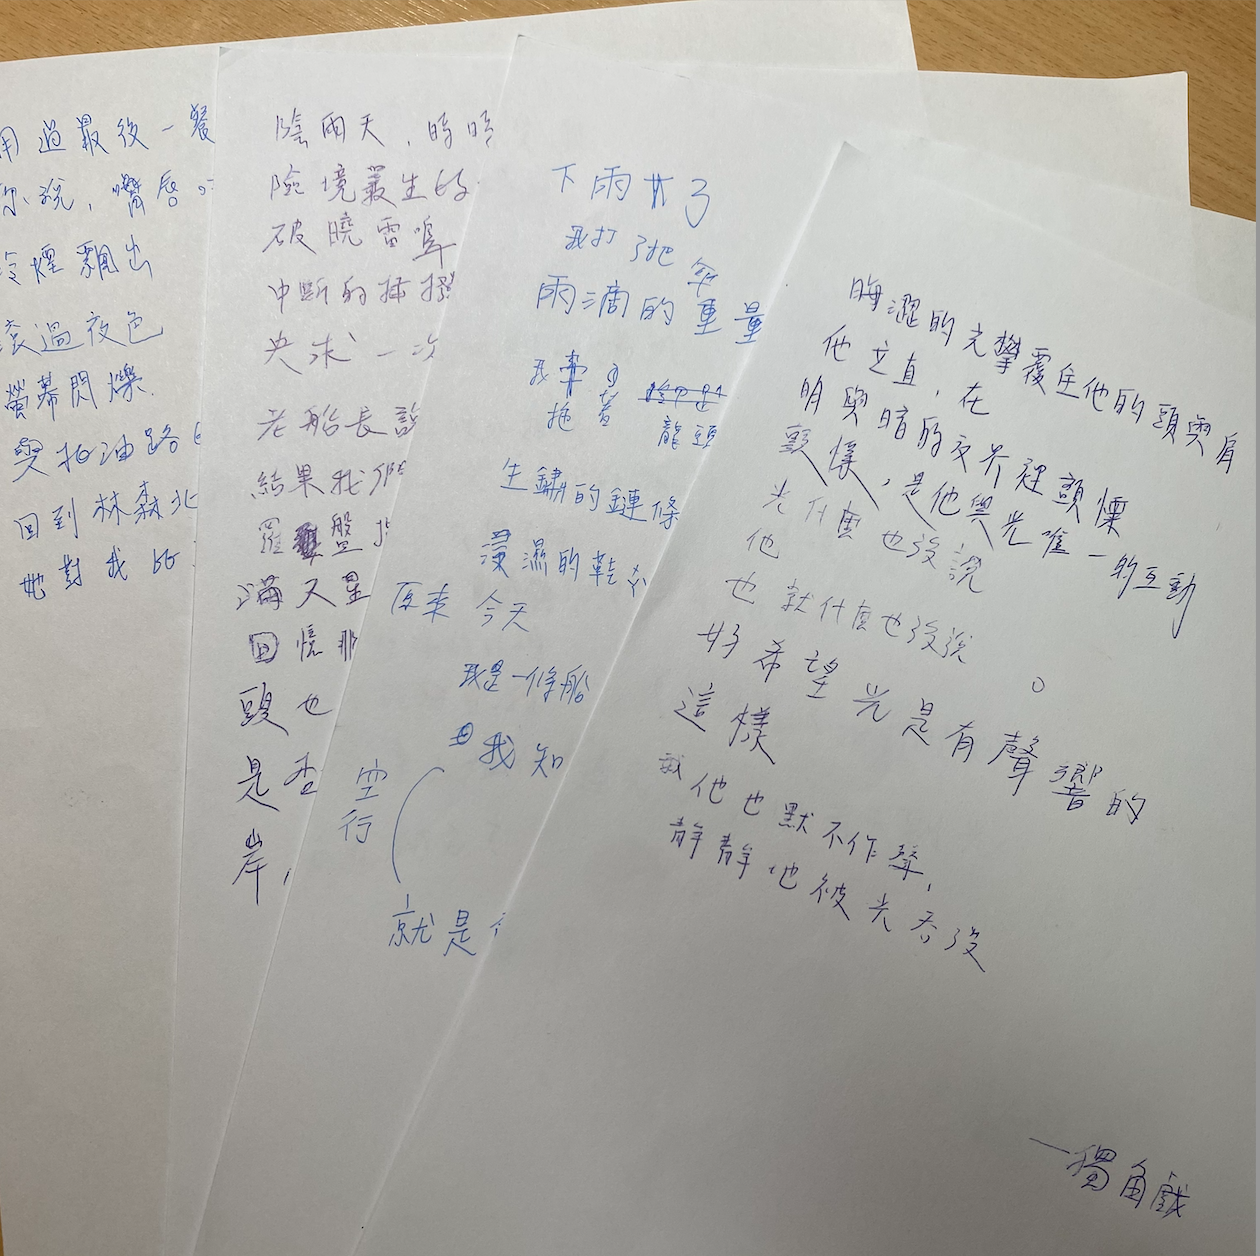 用過最後一餐
你說，嘴唇
冷煙飄出
滾過夜色
螢幕閃爍
與柏油路
回到林森北
她對我
陰雨天，時晴
險境叢生的
破曉雷鳴
中斷的
央求一次
老船長說
結果我們
羅盤
滿天星
回憶非
頭也
是否
岸，
下雨廿了
我打了把
傘
雨滴的重量
我牽
拖著 龍頭
生鏽的鏈條
浸濕的鞋
原來 今天
我是一條船
我知
空
行
就是
晦澀的光攀覆在他的頭與肩
他立直，在
明與暗的交界裡顫慄
顫慄，是他與光唯一的互動
光什麼也沒說
他
也就什麼也沒說。
好希望光是有聲響的
這樣
他也默不作聲，
靜靜地被光吞沒
—獨角戲